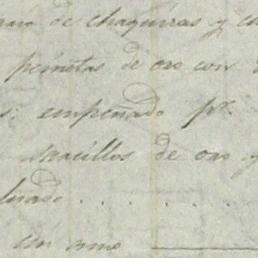 de chaquiras y
peinetas de oro con
empeñado pr.
Macillos de oro y
con una